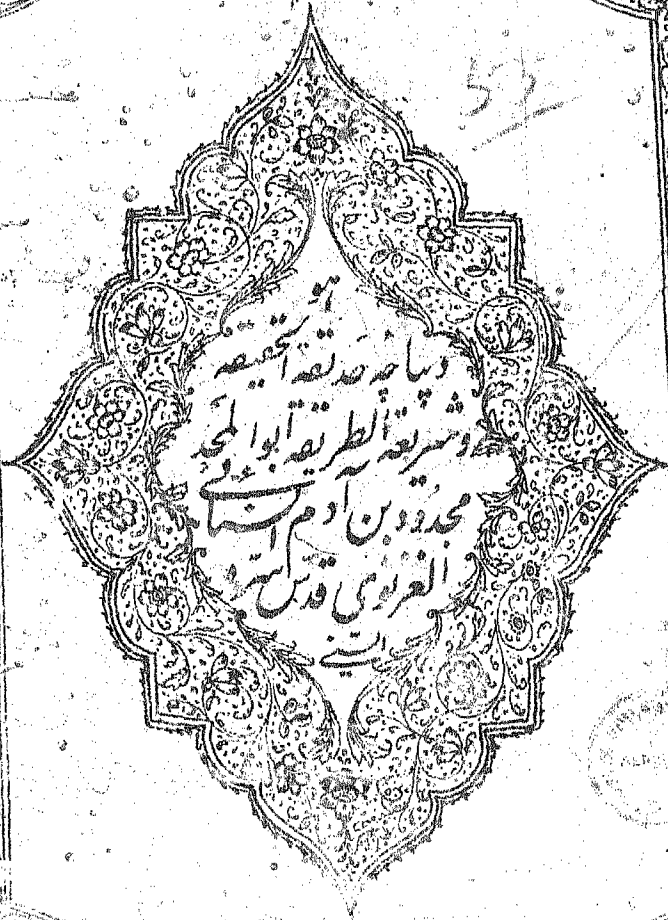 هو
دیباچه حدیقة الحقیقه
وشریعة الطریقه ابوالمجد
مجدود بن آدم السنائی
الغزنوی قدس سره
السنی
55